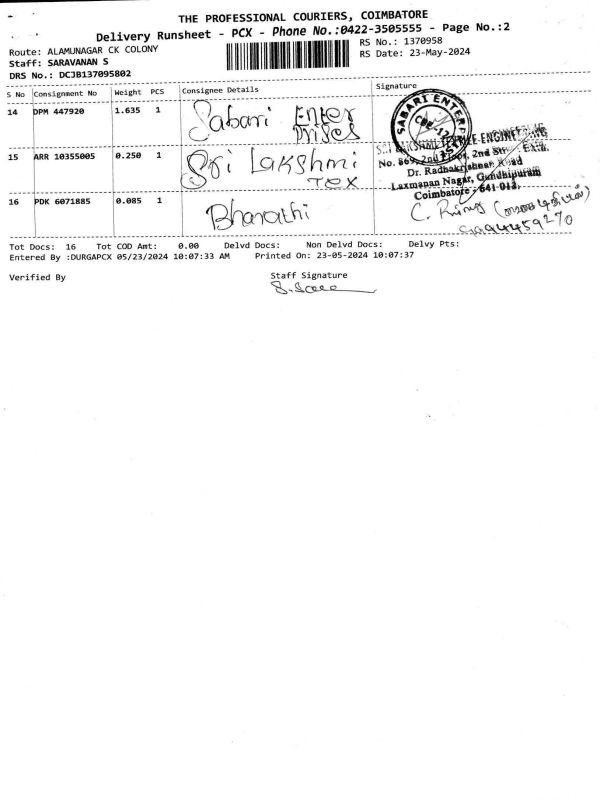 THE PROFESSIONAL COURIERS, COIMBATORE
Delivery Runsheet - PCX - Phone No.:0422-3505555 - Page No.:2
Route: ALAMUNAGAR CK COLONY
RS No.: 1370958
Staff: SARAVANAN S
RS Date: 23-May-2024
DRS No.: DCJB137095802
S No Consignment No Weight PCS Consignee Details Signature
14 DPM 447920 1.635 1 Sabari Enter
prises
SABARI ENTER
15 ARR 10355005 0.250 1 Sri Lakshmi
Tex
No. 869, 2nd Floor, 2nd Str
Dr. Radhakrishnan Road
Laxmanan Nagar, Gandhipuram
Coimbatore - 641 012.
16 PDK 6071885 0.085 1 Bharathi
C.
Tot Docs: 16 Tot COD Amt: 0.00 Delvd Docs: Non Delvd Docs: Delvy Pts:
Entered By :DURGAPCX 05/23/2024 10:07:33 AM Printed On: 23-05-2024 10:07:37
Verified By Staff Signature